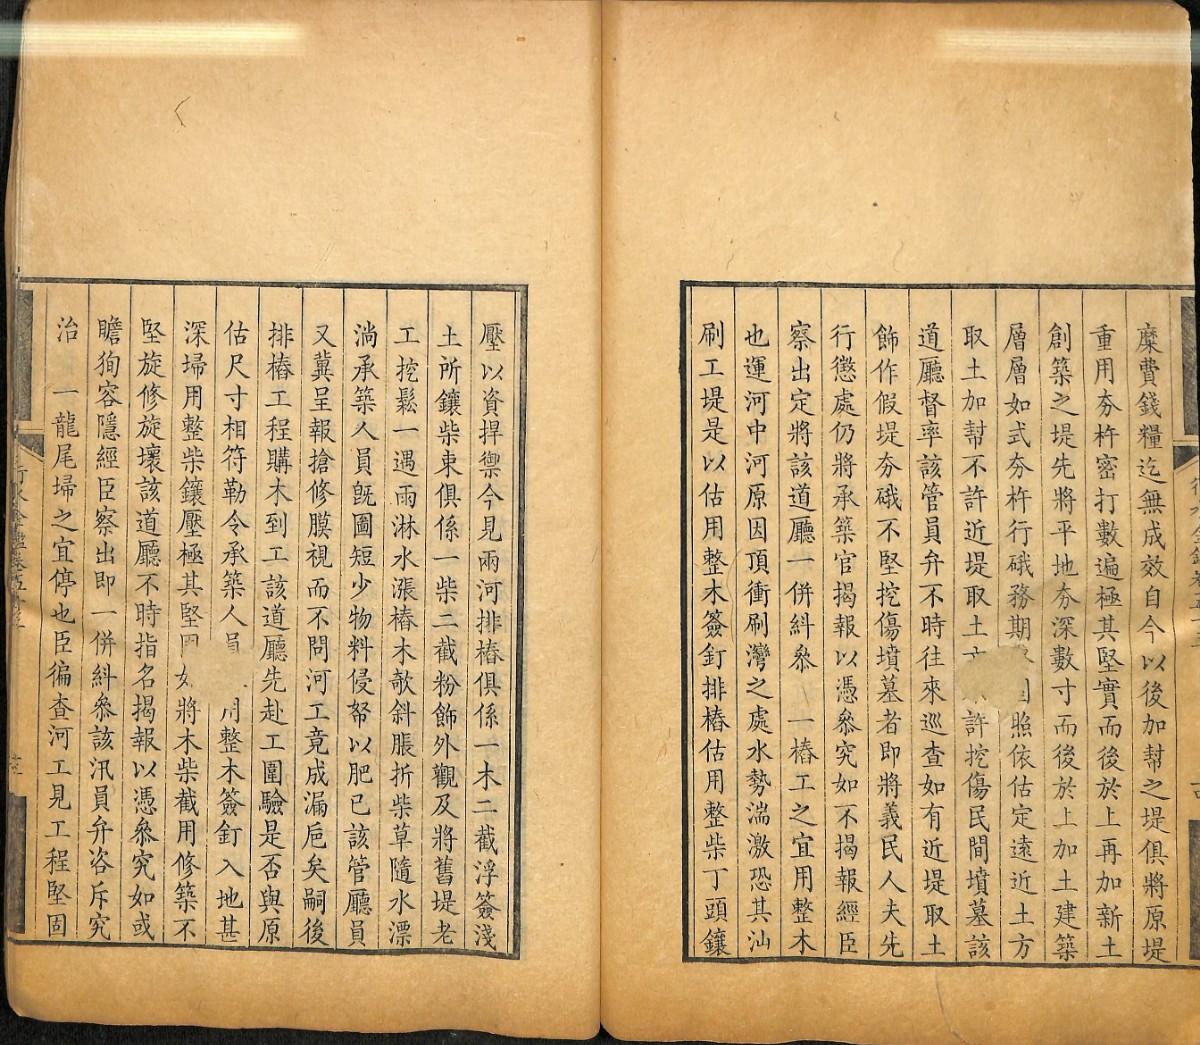 糜費錢糧迄無成效自今以後加幫之堤俱將原堤
重用夯杵密打數遍極其堅實而後於上再加新土
創築之堤先將平地夯深數寸而後於上加土建築
層層如式夯杵行硪務期照依估定遠近土方
取土加幫不許近堤取土許挖傷民間墳墓該
道廳督率該管員弁不時往來巡查如有近堤取土
飾作假堤夯硪不堅挖傷墳墓者即將義民人夫先
行懲處仍將承築官揭報以憑叅究如不揭報經臣
察出定將該道廳一併糾叅 一樁工之宜用整木
也運河中河原因頂衝刷灣之處水勢湍激恐其汕
刷工堤是以估用整木簽釘排樁估用整柴丁頭鑲
壓以資捍禦今見兩河排樁俱係一木二截浮簽淺
土所鑲柴束俱係一柴二截粉飾外觀及將舊堤老
工挖鬆一遇雨淋水漲樁木欹斜脹折柴草隨水漂
淌承築人員旣圖短少物料侵帑以肥已該管廳員
又冀呈報搶修膜視而不問河工竟成漏巵矣嗣後
排樁工程購木到工該道廳先赴工圍驗是否與原
估尺寸相符勒令承築人員用整木簽釘入地甚
深埽用整柴鑲壓極其堅將木柴截用修築不
堅旋修旋壞該道廳不時指名揭報以憑叅究如或
瞻狥容隱經臣察出即一併糾叅該汛員弁咨斥究
治 一龍尾埽之宜停也臣徧查河工見工程堅固